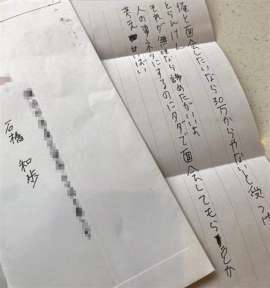 俺と面会したいなら30万からやないと受つけ
とらんけん
それが無理なら諦めたがいいよ
人の事ネタにするのにタダで面会してもらうとか
考え
ばい
石橋 和歩